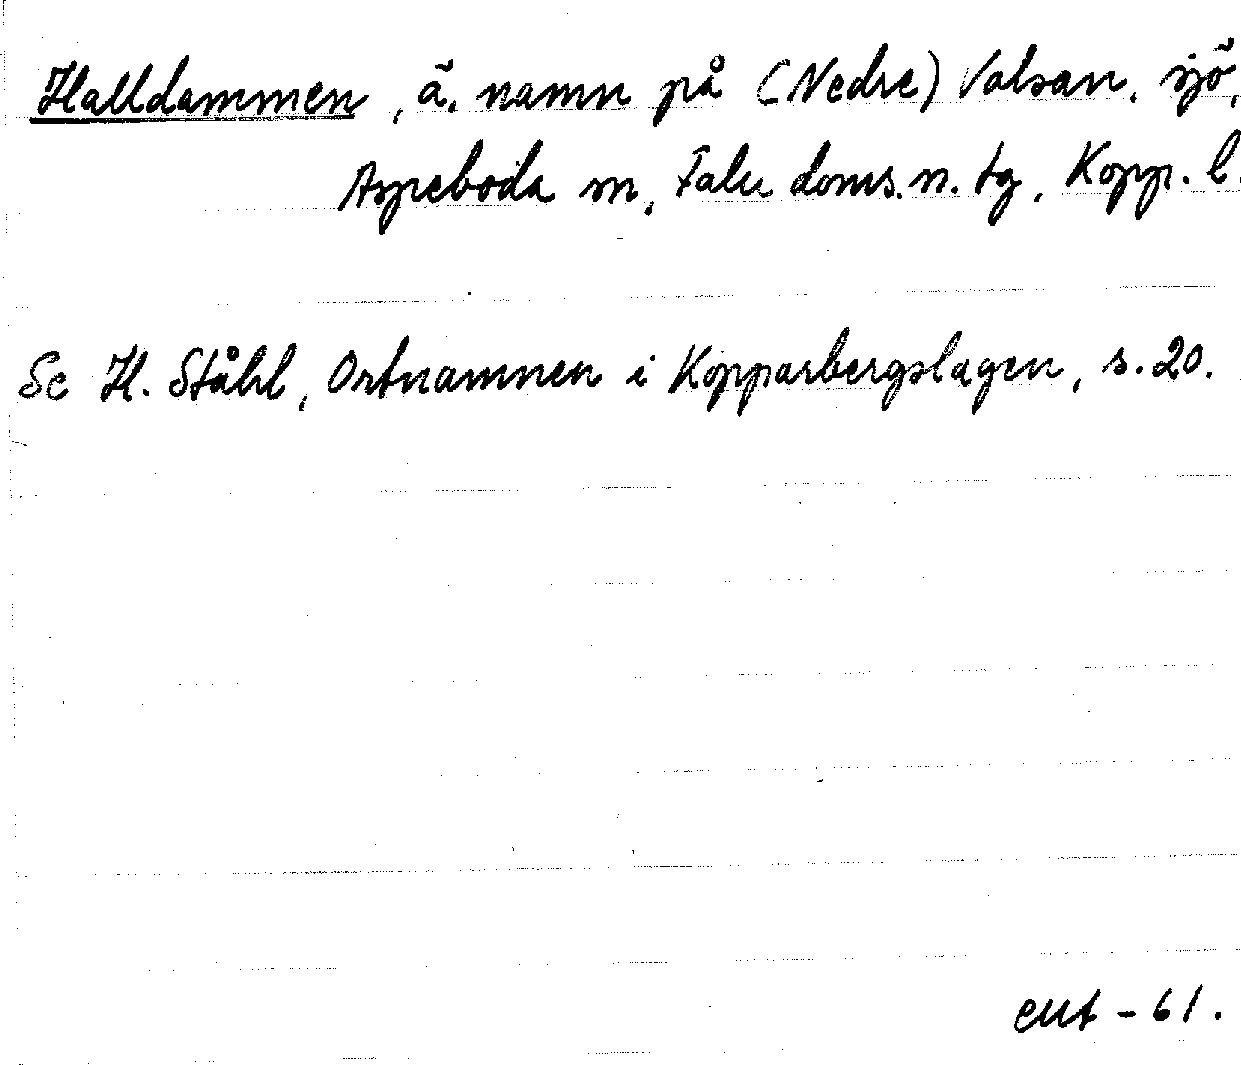 Halldammen, ä. namn på (Nedre) Valsan, sjö,
Aspeboda sn, Falu doms.n. tg, Kopp. l.
Se H. Ståhl, Ortnamnen i Kopparbergslagen, s. 20.
-61.